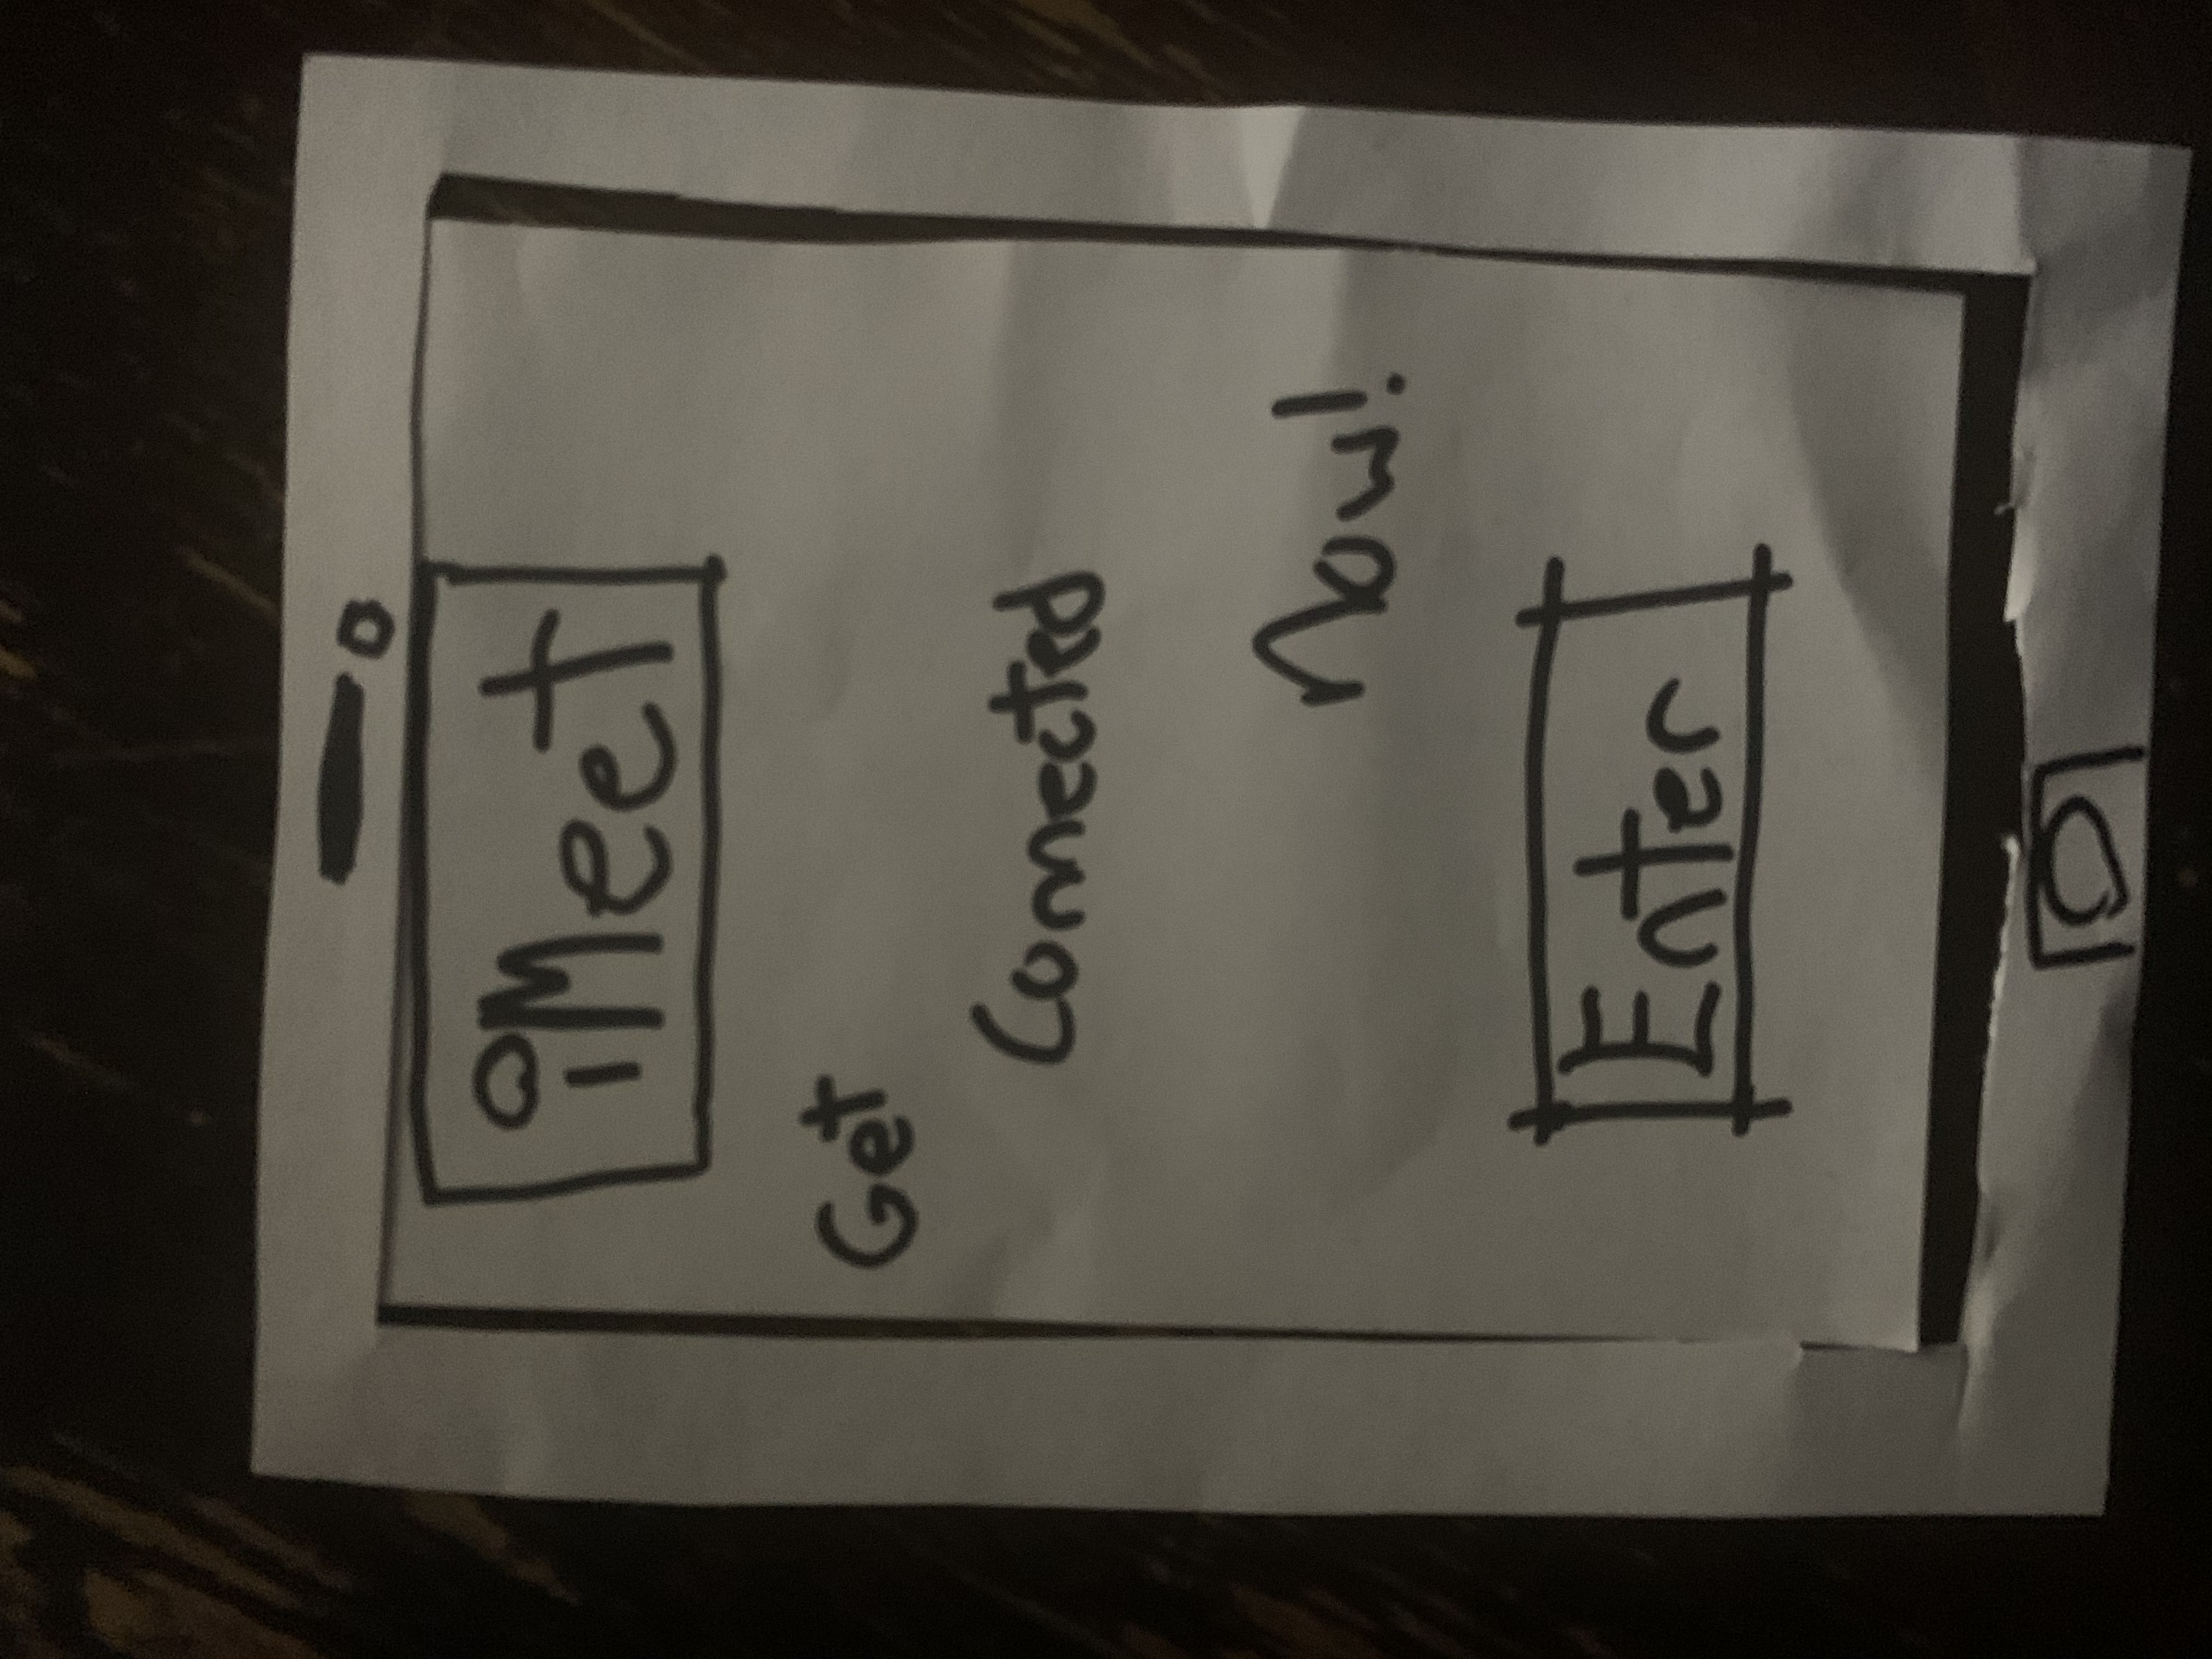 iMeet
Get
Connected
Now!
Enter